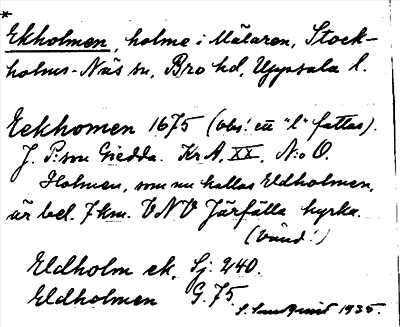 *
Ekholmen, holme i Mälaren, Stock-
holms-Näs sn, Bro hd, Uppsala l.
Eekhomen 1675 (obs! ett "l" fattas).
J. P:son Giedda. Kr A, XX, N:o O.
Holmen, som nu kallas Eldholmen,
är bel. 7 km. VNV Järfälla kyrka.
(Vänd!)
Eldholm ek. Sj. 240.
Eldholmen G. 75
1935.